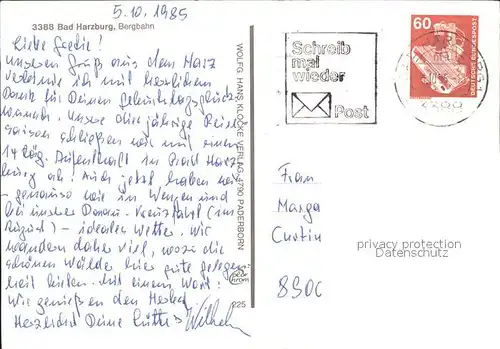 5.10.1985
3388 Bad Harzburg, Bergbahn
Liebe
unseren Gruß aus dem Harz
verbinde ich mit herzlichem
Dank für Deinen Geburtstagsglück-
wunsch. Unsere diesjährige Reise-
saison schließen wir mit einem
14 täg. Aufenthalt in Bad Harz-
burg ab! Auch jetzt haben wir
- genauso wie in Wengen und
bei unserer Donau-Kreuzfahrt (im
August) - ideales Wetter. Wir
wandern daher viel, wozu die
schönen Wälder hier gute Gelegen-
heit bieten. Mit einem Wort:
Wir genießen den Herbst
Herzlichst Deine Wilhelm
WOLFG. HANS KLOCKE VERLAG, 4790 PADERBORN
225
Schreib
mal
wieder
Post
60
DEUTSCHE BUNDESPOST
3388
Frau
Marga
8900
privacy protection
Datenschutz